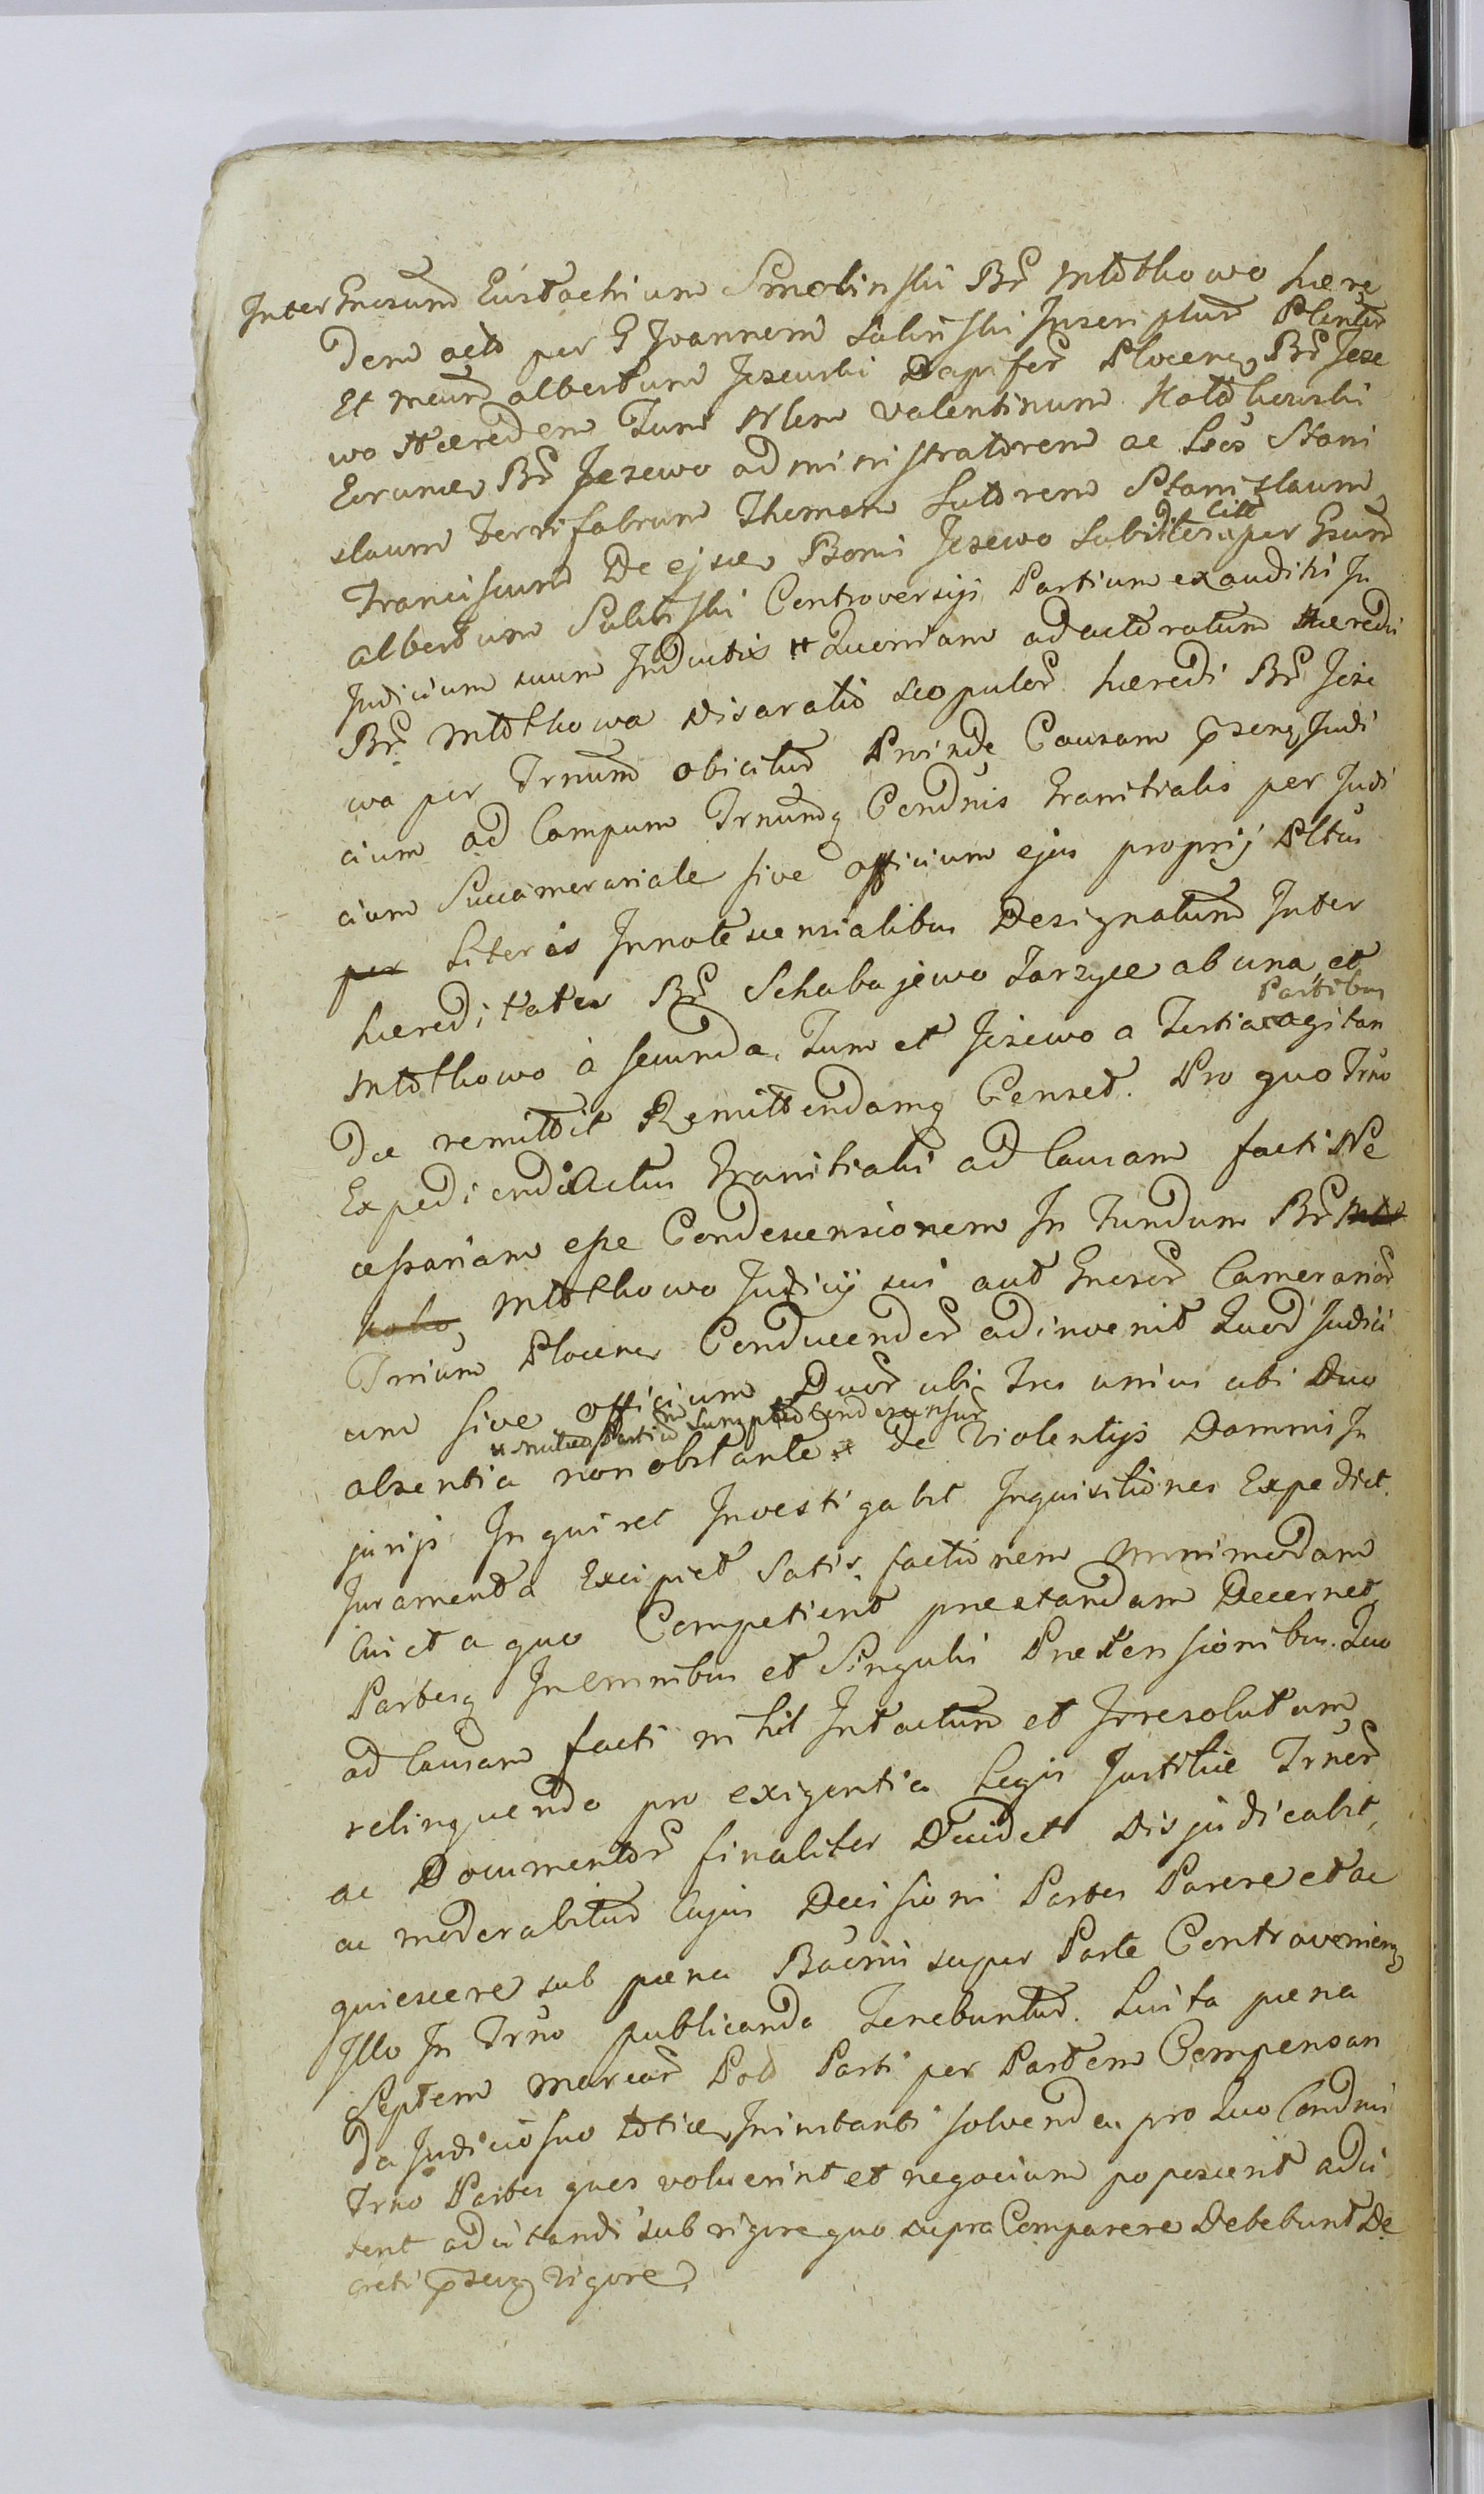 Inter Gnosum Eustachium Smolinski Br Mlotkowo hære
dem acto per G Joannem Lubinski Inscriptum Plenter
Et Meum albertum Jezewski Dapifer Plocens Br Jeze
wo Hæredem Tum Nlem Valentinum Kotkowski
Eorumce Br Jezewo administratorem ac Lsos Stani
slaum ferri fabrum Thomam Sutorem Stanislaum
citt
Franciscum De ejsce Bonis Jezewo Subditos per Gsum
albertum Subinski Controversijs Partium exauditis In
Judicium suum Inductis # Quoniam ad actoratum Hæredis
Br Mlotkowa Disaratio scopulor hæredi Br Jeze
wa per Trnum obicitur Proinde Causam psens Judi
cium ad Campum Trnumq Condnis Granitialis per Judi
cium Succamerariale sive officium ejus proprijs Pltus
per Literis Innotescensialibus Designatum Inter
hæreditates Br Schabajewo Tarzyce ab una et
Partibus
Mlotkowo à secunda, Tum et Jezewo a Tertia agitan
da remittit Remittendamq Censet. Pro quo Trno
Expediendi Actus Granitialis ad Causam facti Ne
cessariam esse Condescensionem In Fundum Br
Mlotkowo Judicij sui aut Gnosor Camerarior
Trnium Plocens Conducendor adinvenit Quod Judici
um sive officium Duor ubi Tres unius ubi Duo
# mutuo Partium Sumptu Condescensur
absentia non obstante # de Violentijs Damnis In
jurijs Inquiret Investigabit Inquisitiones Expediet
Juramenta Excipiet Satis factionem omnimodam
Cui et a quo Competierit præstandam Decernet
Partesq In omnibus et Singulis Prætensionibus. Quo
ad Causam facti nihil Intactum et Irresolutum
relinquendo pro exigentia Legis Justitiæ Trnor
ac Documentor finaliter Decidet Disjudicabit,
ac moderabitur Cujus Decisioni Partes Parere et ac
quiescere sub pæna Baonis super Parte Contraveniens
Illo In Trno publicanda Tenebuntur. Luita pæna
Septem marcar Pol Parti per Partem Compensan
da Judicio suo toties Ininstanti solvenda, pro Quo Condnis
Trno Partes ques voluerint et negocium poposcerit adci
tent adcitandi sub rigore quo supra Comparere Debebunt De
creti psens vigore.